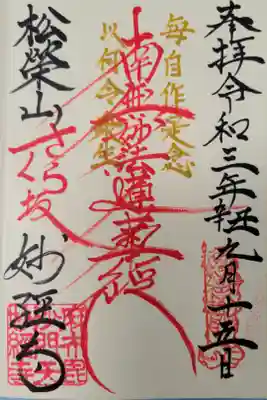 奉拝 令和三年辛丑九月十五日
毎自作是念
以何令衆生
南無妙法蓮華経
松榮山
さくら坂
妙經寺